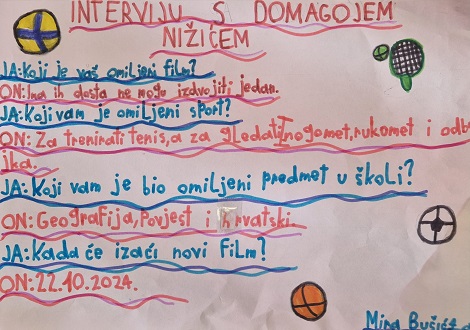 INTERVIJU S DOMAGOJEM
NIŽIĆEM
JA: Koji je vaš omiljeni film?
ON: Ima ih dosta ne mogu izdvojiti jedan.
JA: Koji vam je omiljeni sport?
ON: Za trenirati tenis, a za gledati nogomet, rukomet i odbo
jka.
JA: Koji vam je bio omiljeni predmet u školi?
ON: Geografija, Povjest i hrvatski.
JA: Kada će izaći novi film?
ON: 22.10.2024.